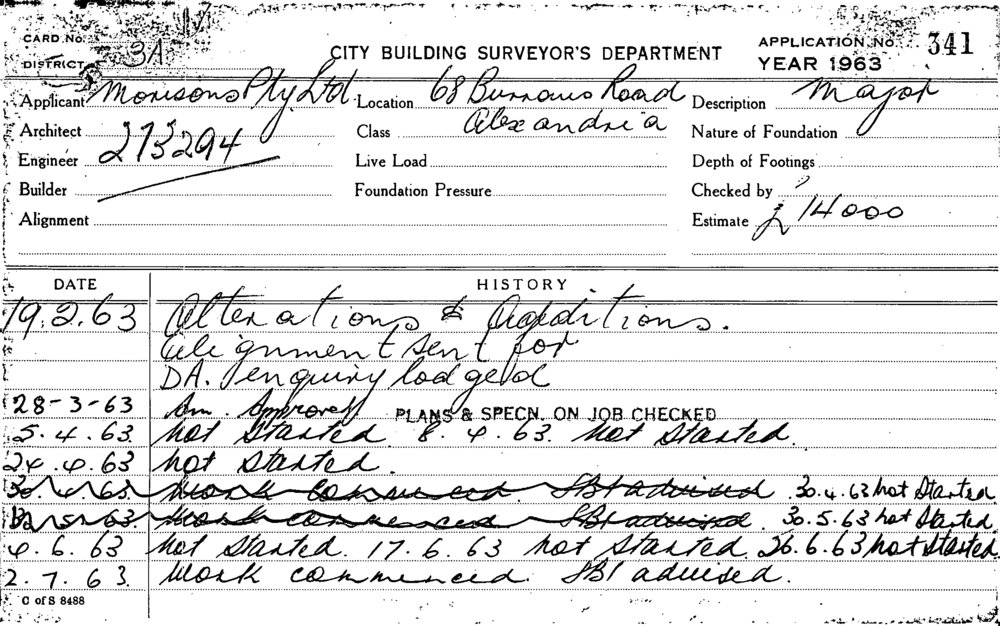 CARD No.
DISTRICT 3A
CITY BUILDING SURVEYOR'S DEPARTMENT
APPLICATION No. 341
YEAR 1963
Applicant Morisons Pty Ltd. Location 68 Burrows Road Description Major
Architect 273294 Class Alexandria Nature of Foundation
Engineer Live Load Depth of Footings
Builder Foundation Pressure Checked by
Alignment Estimate £14000
DATE HISTORY
19.2.63 Alterations & Additions.
Alignment sent for
DA. enquiry lodged
28-3-63 Am. Approved PLANS & SPECN. ON JOB CHECKED
5.4.63. not started 8.4.63. not started.
24.4.63 not started.
30.4.63. Work commenced. SBI advised 30.4.63 not started
63. Work commenced SBI advised. 30.5.63 not started
4.6.63 not started. 17.6.63 not started. 26.6.63 not started.
2.7.63. Work commenced. SBI advised.
C of S 8488